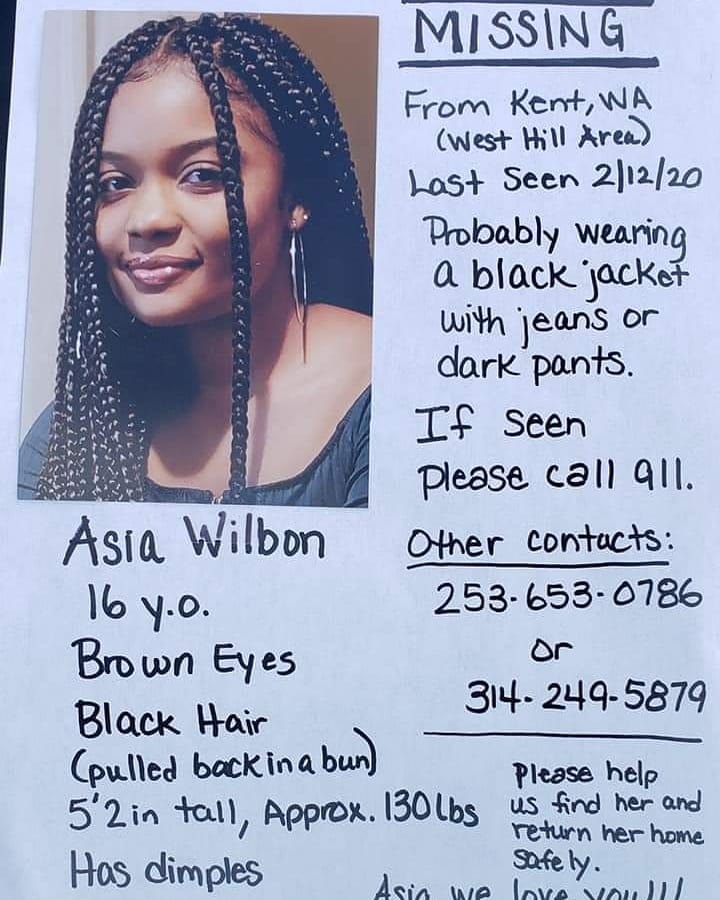 MISSING
From Kent, WA
(West Hill Area)
Last Seen 2/12/20
Probably wearing
a black jacket
with jeans or
dark pants.
If seen
please call 911.
Other contacts:
253-653-0786
or
314-249-5879
Please help
us find her and
return her home
safely.
Asia we love you!!!
Asia Wilbon
16 y.o.
Brown Eyes
Black Hair
(pulled back in a bun)
5'2in tall, Approx. 130lbs
Has dimples